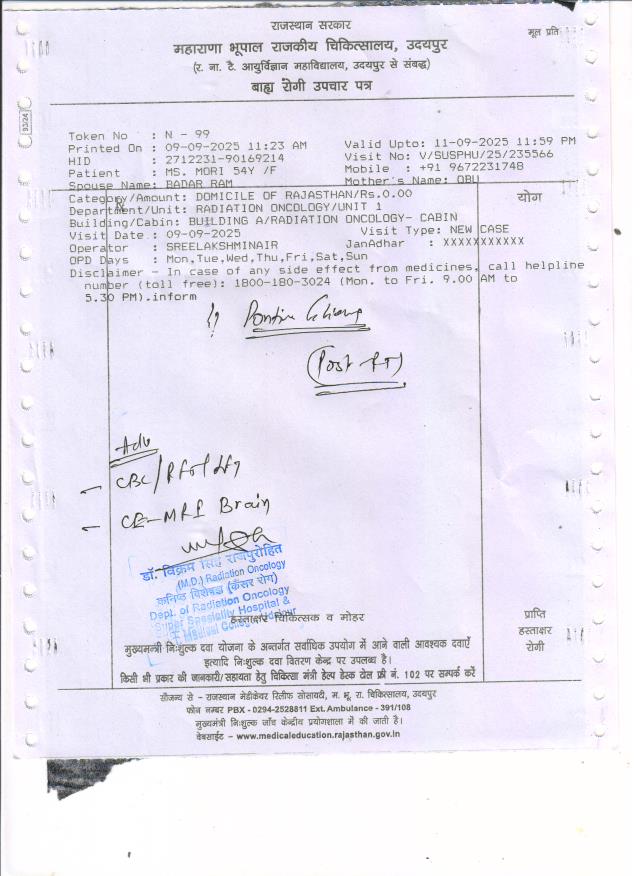 राजस्थान सरकार
मूल प्रति
महाराणा भूपाल राजकीय चिकित्सालय, उदयपुर
(र. ना. टै. आयुर्विज्ञान महाविद्यालय, उदयपुर से संबद्ध)
बाह्य रोगी उपचार पत्र
93/24
Token No : N - 99
Printed On : 09-09-2025 11:23 AM Valid Upto: 11-09-2025 11:59 PM
HID : 2712231-90169214 Visit No: V/SUSPHU/25/235566
Patient : MS. MORI 54Y /F Mobile : +91 9672231748
Spouse Name: BADAR RAM Mother's Name: OBU
Category/Amount: DOMICILE OF RAJASTHAN/Rs.0.00 योग
Department/Unit: RADIATION ONCOLOGY/UNIT 1
Building/Cabin: BUILDING A/RADIATION ONCOLOGY- CABIN
Visit Date : 09-09-2025 Visit Type: NEW CASE
Operator : SREELAKSHMINAIR JanAdhar : XXXXXXXXXXX
OPD Days : Mon,Tue,Wed,Thu,Fri,Sat,Sun
Disclaimer - In case of any side effect from medicines, call helpline
number (toll free): 1800-180-3024 (Mon. to Fri. 9.00 AM to
5.30 PM).inform
Pontine Glioma
(Post RT)
Adv
- CBC/RFT/LFT
- CE-MRI Brain
डॉ. विक्रम सिंह राजपुरोहित
(M.D.) Radiation Oncology
कनिष्ठ विशेषज्ञ (कैंसर रोग)
Dept. of Radiation Oncology
Super Speciality Hospital &
Medical College, Udaipur
हस्ताक्षर चिकित्सक व मोहर
प्राप्ति
हस्ताक्षर
रोगी
मुख्यमंत्री निःशुल्क दवा योजना के अन्तर्गत सर्वाधिक उपयोग में आने वाली आवश्यक दवाएँ
इत्यादि निःशुल्क दवा वितरण केन्द्र पर उपलब्ध है।
किसी भी प्रकार की जानकारी/सहायता हेतु चिकित्सा मंत्री हेल्प डेस्क टोल फ्री नं. 102 पर सम्पर्क करें
सौजन्य से - राजस्थान मेडीकेयर रिलीफ सोसायटी, म. भू. रा. चिकित्सालय, उदयपुर
फोन नम्बर PBX - 0294-2528811 Ext. Ambulance - 391/108
मुख्यमंत्री निःशुल्क जाँच केन्द्रीय प्रयोगशाला में की जाती है।
वेबसाईट - www.medicaleducation.rajasthan.gov.in